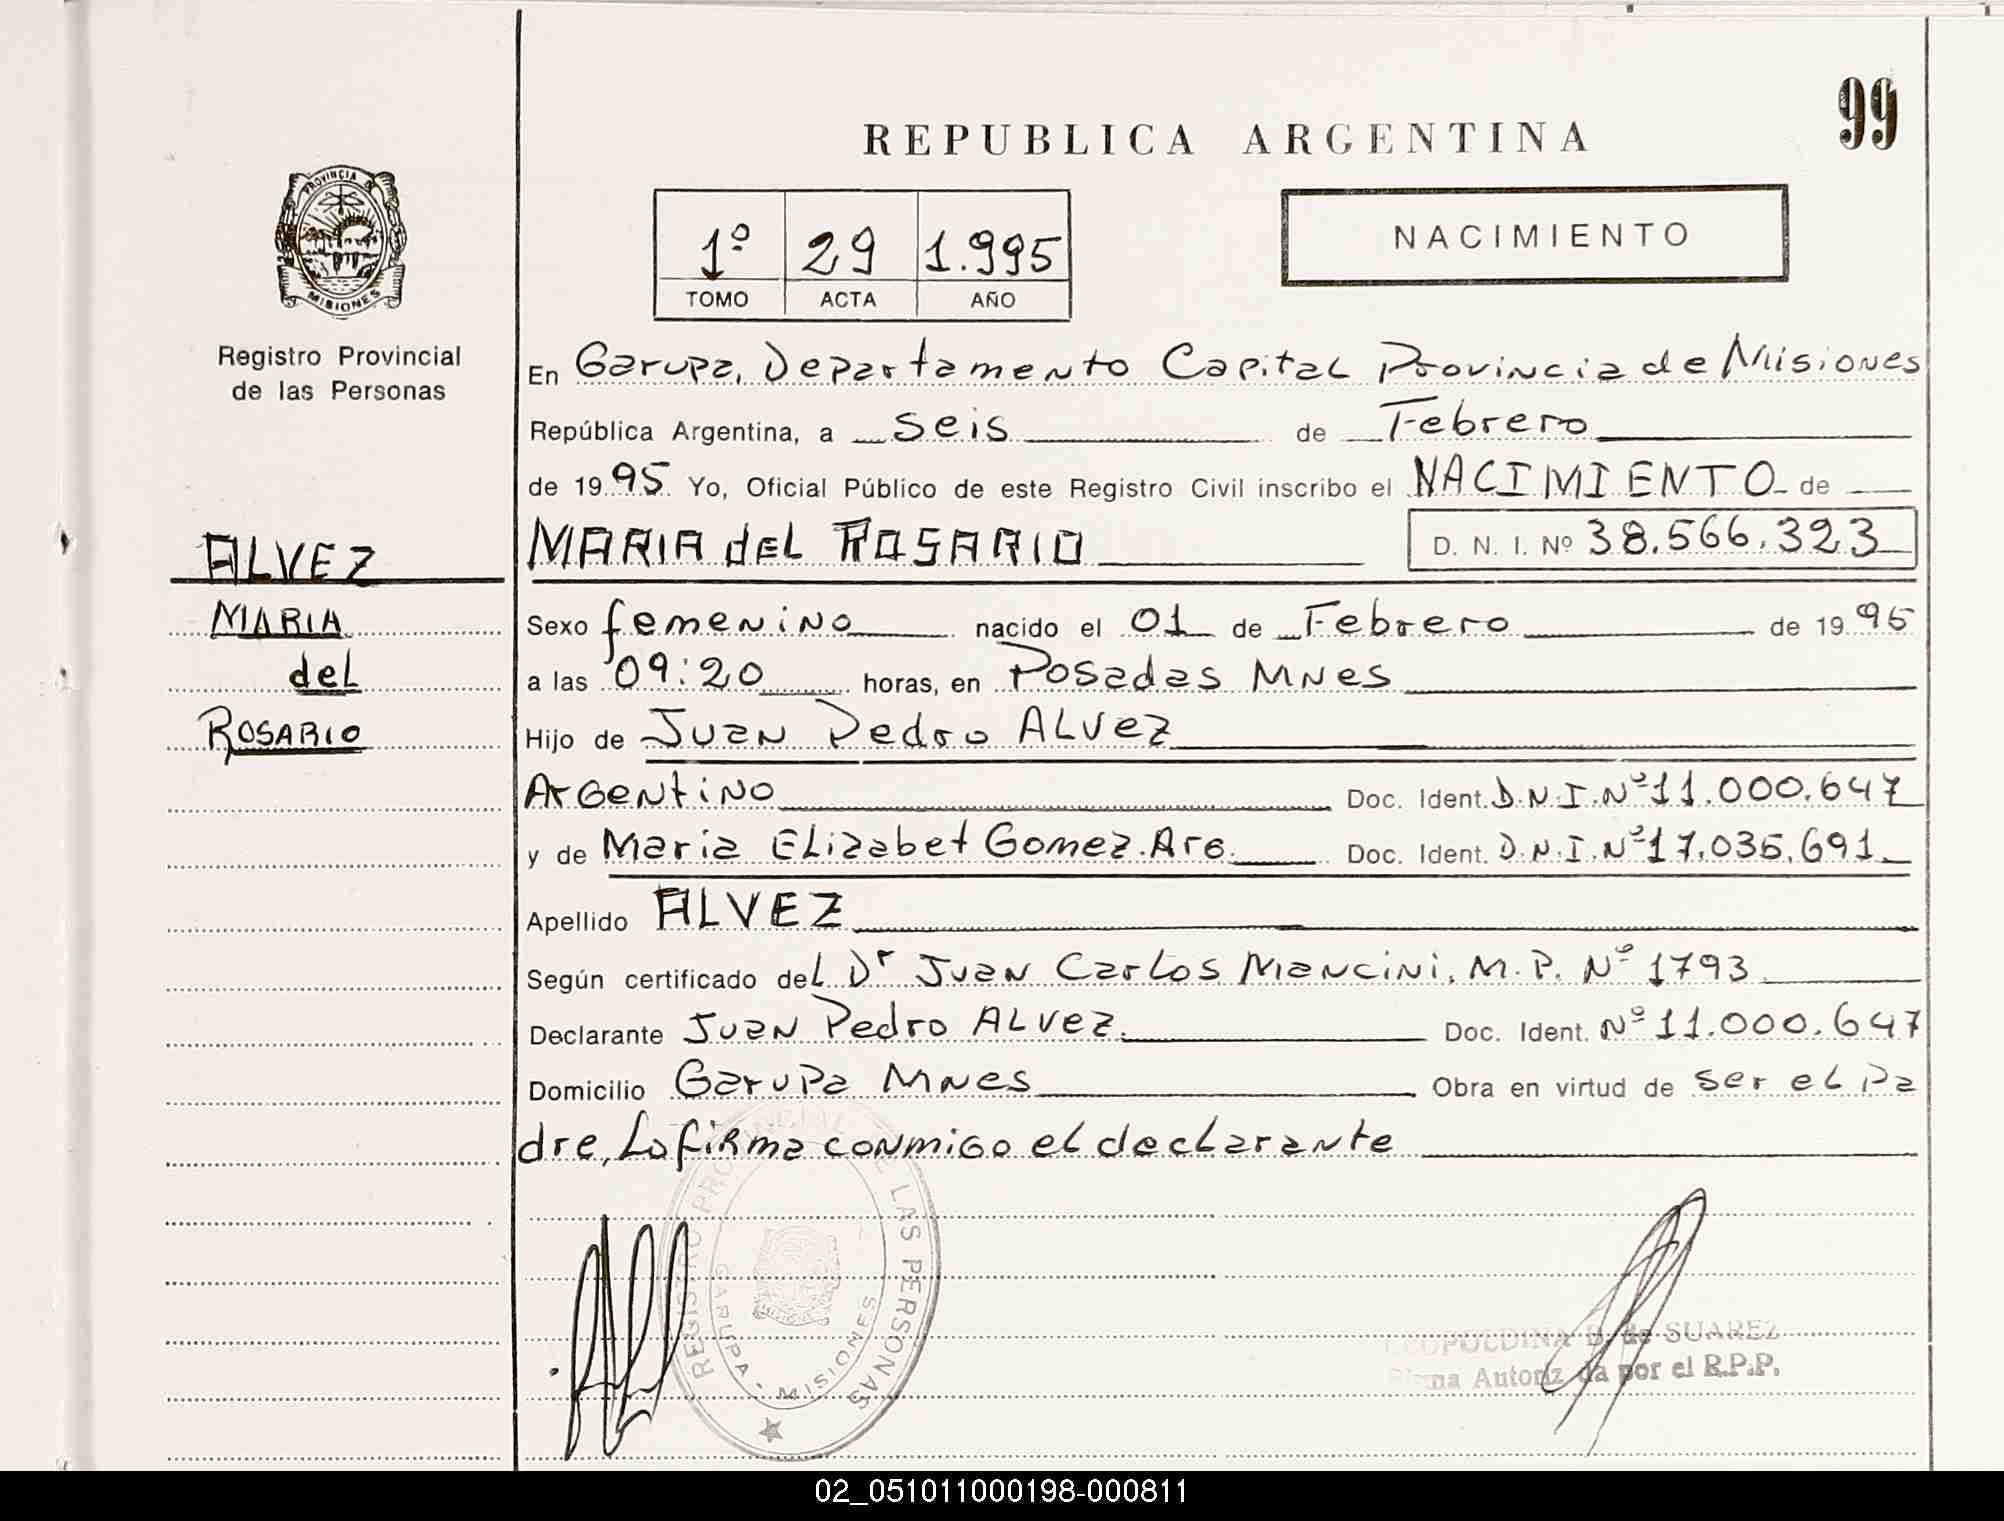 99
REPUBLICA ARGENTINA
PROVINCIA DE
MISIONES
Registro Provincial
de las Personas
1º 29 1.995
TOMO ACTA AÑO
NACIMIENTO
En Garupa, Departamento Capital Provincia de Misiones
República Argentina, a seis de Febrero
de 1995 Yo, Oficial Público de este Registro Civil inscribo el NACIMIENTO de
ALVEZ
MARIA
del
ROSARIO
MARIA del ROSARIO D. N. I. Nº 38.566.323
Sexo femenino nacido el 01 de Febrero de 1995
a las 09:20 horas, en Posadas Mnes
Hijo de Juan Pedro ALVEZ
Argentino Doc. Ident. D.N.I.Nº 11.000.647
y de Maria Elizabet Gomez. Arg. Doc. Ident. D.N.I.Nº 17.035.691
Apellido ALVEZ
Según certificado del Dr Juan Carlos Mancini. M.P. Nº 1793
Declarante Juan Pedro ALVEZ. Doc. Ident. Nº 11.000.647
Domicilio Garupa Mnes Obra en virtud de ser el pa
dre, La firma conmigo el declarante
REGISTRO PROVINCIAL DE LAS PERSONAS
GARUPA - MISIONES
LEOPOLDINA B. de SUAREZ
Autoriz da por el R.P.P.
02_051011000198-000811